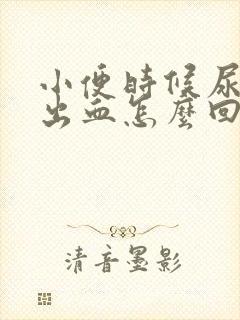 小便時候尿
出血怎麼回
清音墨影